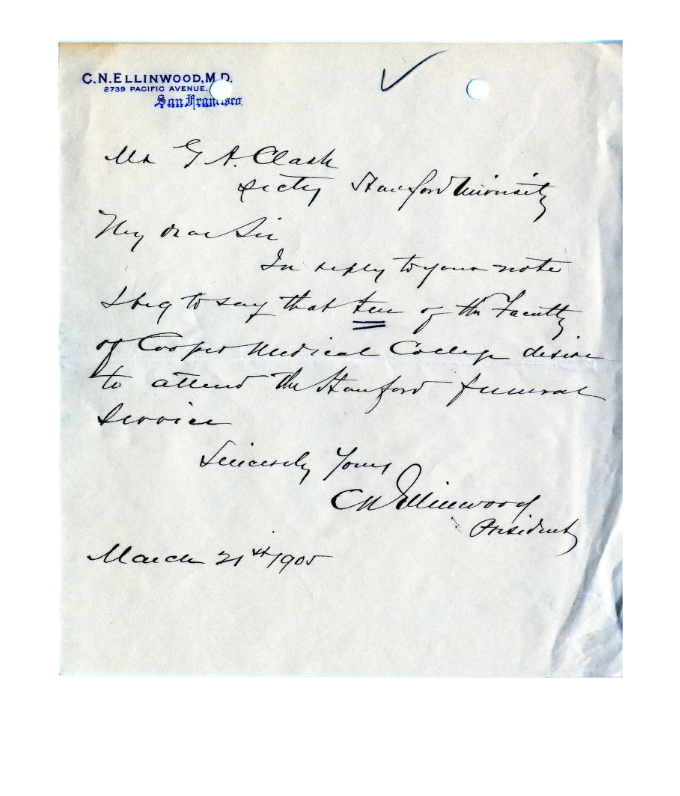 C.N. ELLINWOOD, M.D.
2739 PACIFIC AVENUE.
San Francisco
Mr G. A. Clark
Secty Stanford University
My dear Sir
In reply to your note
I beg to say that ten of the Faculty
of Cooper Medical College desire
to attend the Stanford funeral
service
Sincerely Yours
C N Ellinwood
President
March 21st 1905